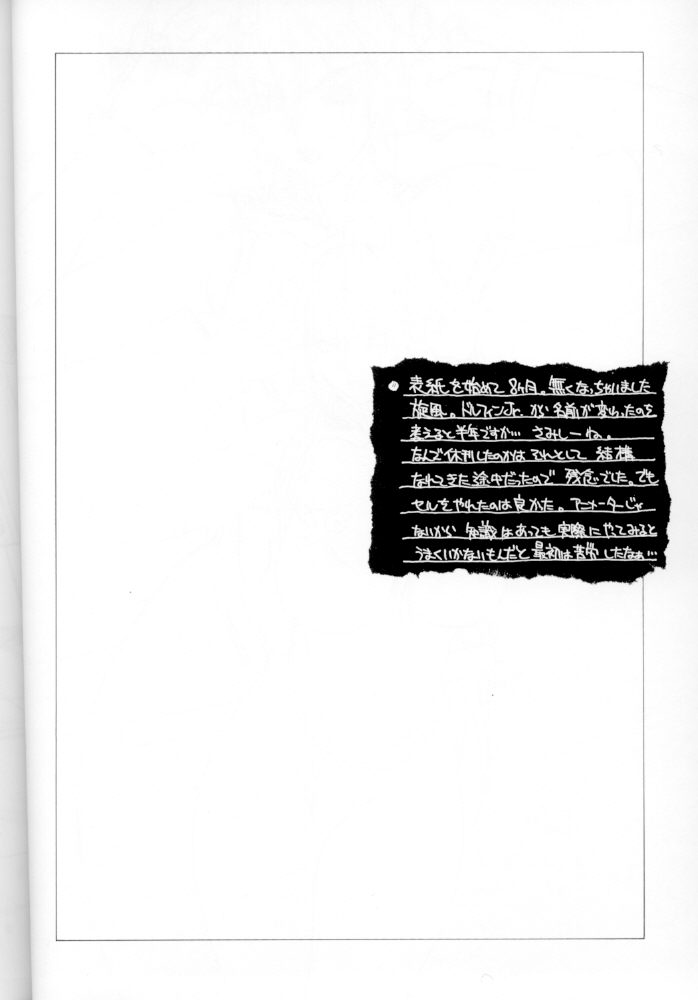 表紙を始めて8ヶ月。無くなっちゃいました
旋風。ドルフィンJr.から名前が変わったのを
考えると半年ですが… さみしーね。
なんで休刊したのかは それとして 結構
なれてきた途中だったので 残念でした。でも
セルをやれたのは良かった。アニメーターじゃ
ないから 知識はあっても実際にやってみると
うまくいかないもんだと 最初は苦労したなぁ…